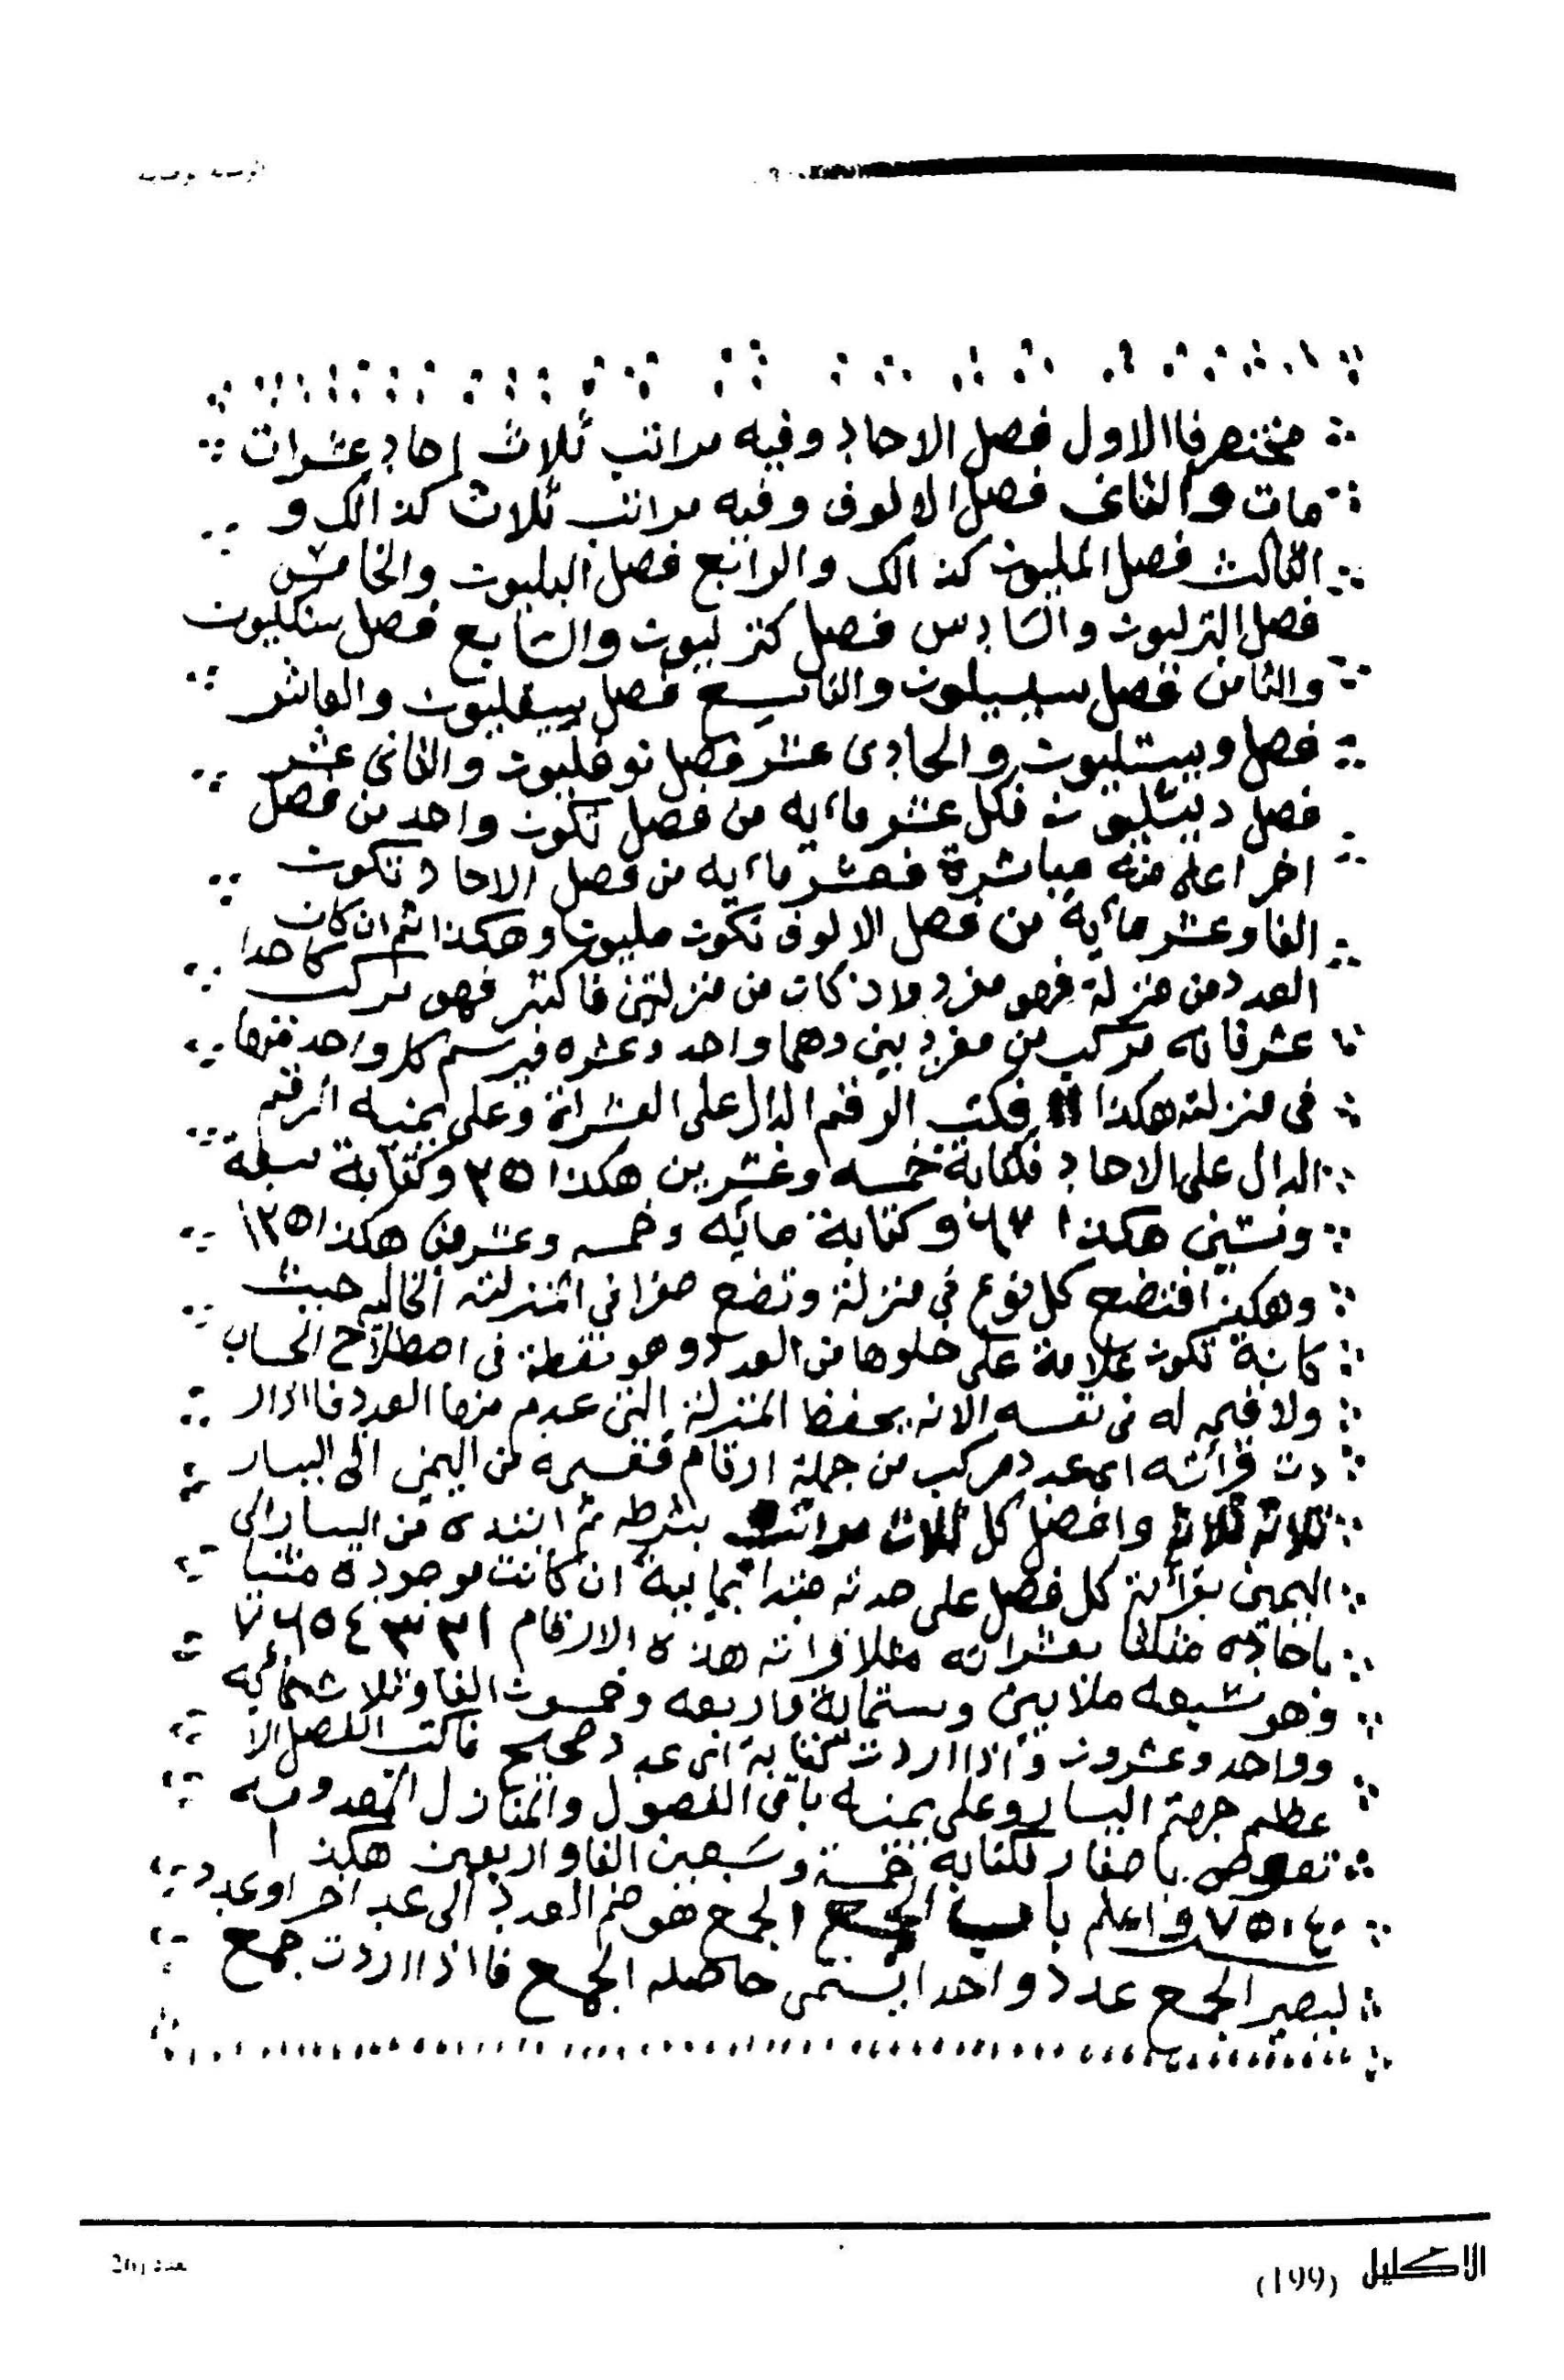 مختصر فا الاول فصل الاحاد وفيه مراتب ثلاث احاد عشرات
مات والثانى فصل الالوف وفيه مراتب ثلاث كذالك و
الثالث فصل المليون كذالك والرابع فصل البليون والخامس
فصل الترليون والسادس فصل كترليون والسابع فصل سنكليون
والثامن فصل سيسيلون والتاسع فصل سيقليون والعاشر
فصل وبيستليون والحادى عشر فصل نوفليون والثانى عشر
فصل ديشليون فكل عشر مايه من فصل تكون واحد من فصل
اخر اعلى منه مباشرة فعشر مايه من فصل الاحاد تكون
الفا وعشر مايه من فصل الالوف تكون مليون وهكذا ثم ان كان
العدد من منزلة فهو مفرد واذ كان من منزلتين فاكثر فهو مركب كاحدا
عشر فانه مركب من مفردين وهما واحد وعشره فيرسم كل واحد منها
فى منزلته هكذا ١١ فكتب الرقم الدال على العشراة وعلى يمنيه الرقم
الدال على الاحاد فكتابة خمسه وعشرين هكذا ٢٥ وكتابة سبعة
وستين هكذا ٦٧ وكتابة مائه وخمسه وعشرين هكذا ١٢٥
وهكذا فتضع كل نوع في منزلة وتضع صفرا في المنزلته الخاليه حيث
كانة تكون علامة على خلوها من العدد وهو نقطة فى اصطلاح الحساب
ولا قيمه له فى نفسه الانه يحفظ المنزلة التى عدم منها العدد فااذار
دت قرائته اى عدد مركب من جملة ارقام فقسمه من اليمنى الى اليسار
ثلاثه ثلاثة وافصل كل ثلاث مراتب بشرطه ثم ابتده من اليسار الى
اليمين بقرأة كل فصل على حدته مبتدا بمايية ان كانت موجوده مثنيا
باحاده مثلثا بعشراته مثلا قراته هذه الارقام ٧٦٥٤٣٢١
فهو سبعه ملايين وستماية واربعه وخمسون الفا وثلاثمائه
وواحد وعشرون واذا اردت كتابة اى عدد صحيح فاكتب الفصل الا
عظم جهة اليسار وعلى يمنه باقى الفصول والمنازل المعدومه
تعوض باصفار فكتابة خمسة وسبعين الفا واربعين هكذا
٧٥٠٤٠ واعلم باب الجمع الجمع هو ضم العدد الى عدد اخر او عدد
ليصير الجمع عدد واحدا يسمى حاصله الجمع فااذا اردت جمع
الاكليل (199)